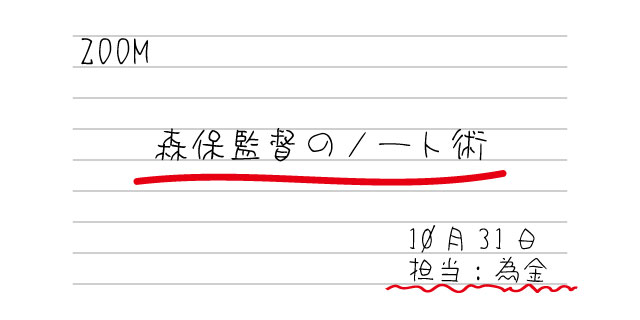 ZOOM
森保監督のノート術
10月31日
担当：為金